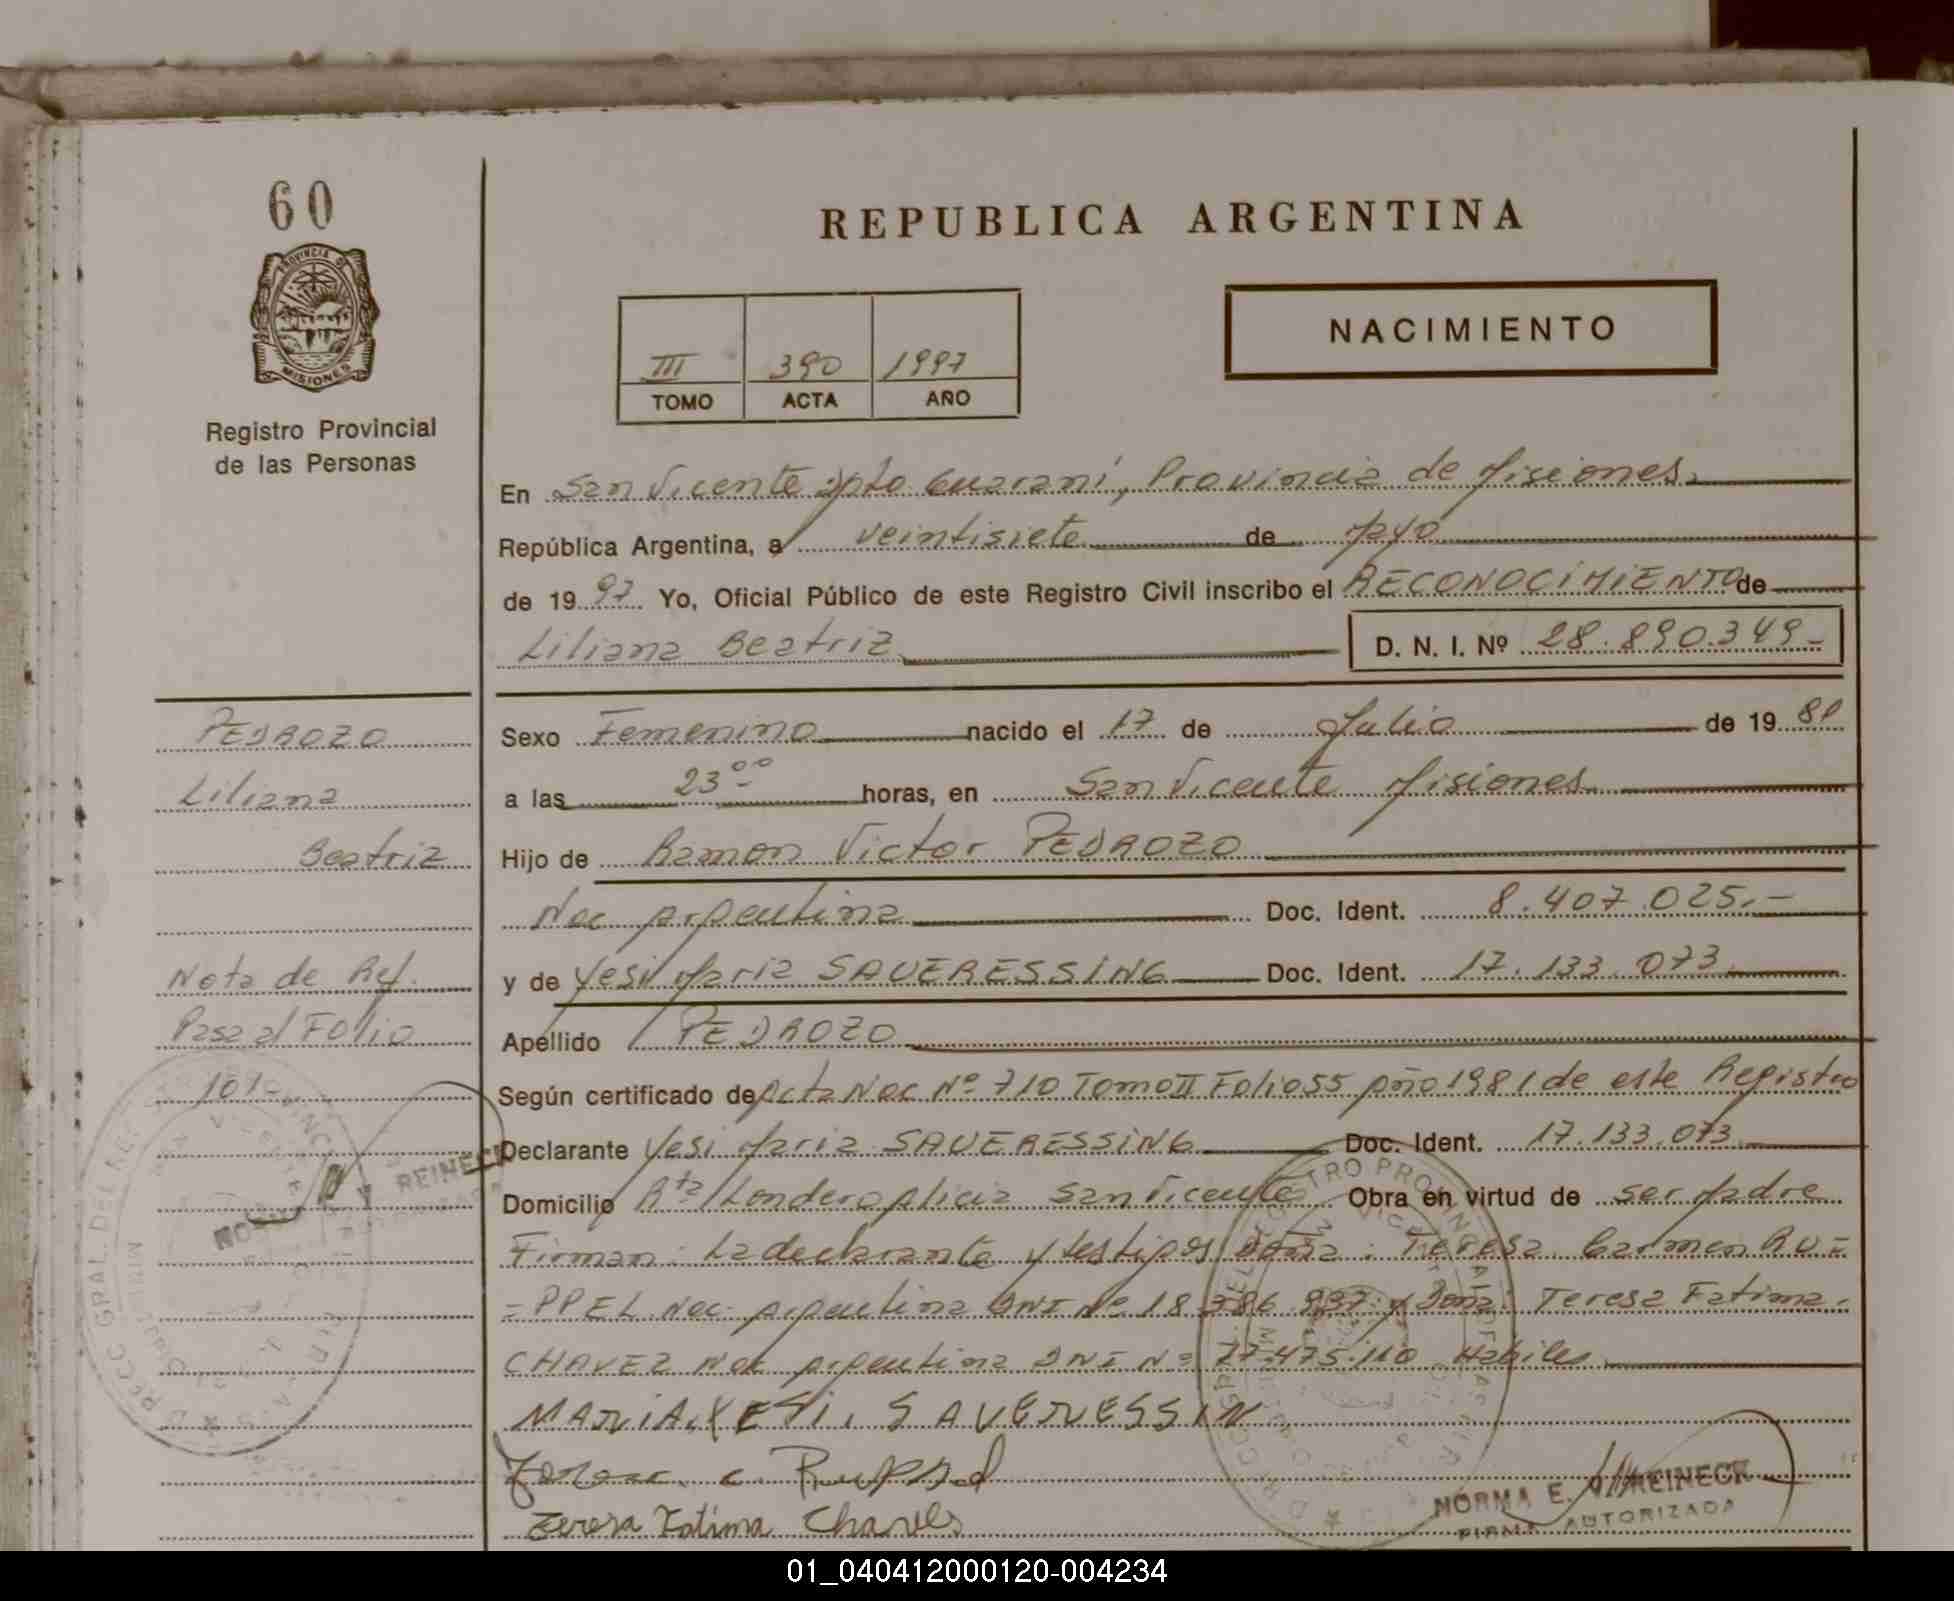 60
PROVINCIA DE
MISIONES
Registro Provincial
de las Personas
REPUBLICA ARGENTINA
III 390 1997
TOMO ACTA AÑO
NACIMIENTO
En San Vicente Dpto Guaraní, Provincia de Misiones
República Argentina, a veintisiete de Mayo
de 1997 Yo, Oficial Público de este Registro Civil inscribo el RECONOCIMIENTO de
Liliana Beatriz D. N. I. Nº 28.890.349-
PEDROZO
Liliana
Beatriz
Nota de Ref.
Pasa al Folio
101-
Sexo Femenino nacido el 17 de Julio de 1981
a las 23 ºº horas, en San Vicente Misiones
Hijo de Ramon Victor PEDROZO
Nac Argentina Doc. Ident. 8.407.025.-
y de Yesi Maria SAUERESSING Doc. Ident. 17.133.073
Apellido PEDROZO
Según certificado de Acta Nac Nº 710 Tomo II Folio 55 Año 1981 de este Registro
Declarante Yesi Maria SAUERESSING Doc. Ident. 17.133.073
Domicilio Rta Londero Alicia San Vicente Obra en virtud de ser Madre
Firman: La declarante y testigos Doña: Teresa Carmen RU=
=PPEL Nac. Argentina DNI Nº 18 y Doña: Teresa Fatima
CHAVEZ Nac Argentina DNI Nº .475.110 Habiles
MARIA YESI. SAVERESSIN
c Ruppel
Teresa Fatima Chaves
NORMA E. REINECK
FIRMA AUTORIZADA
REINECK
01_040412000120-004234